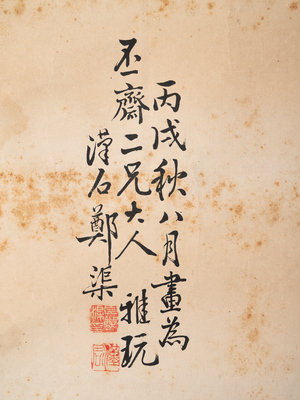 丙戌秋八月畫為
丕齋二兄大人 雅玩
漢石鄭渠